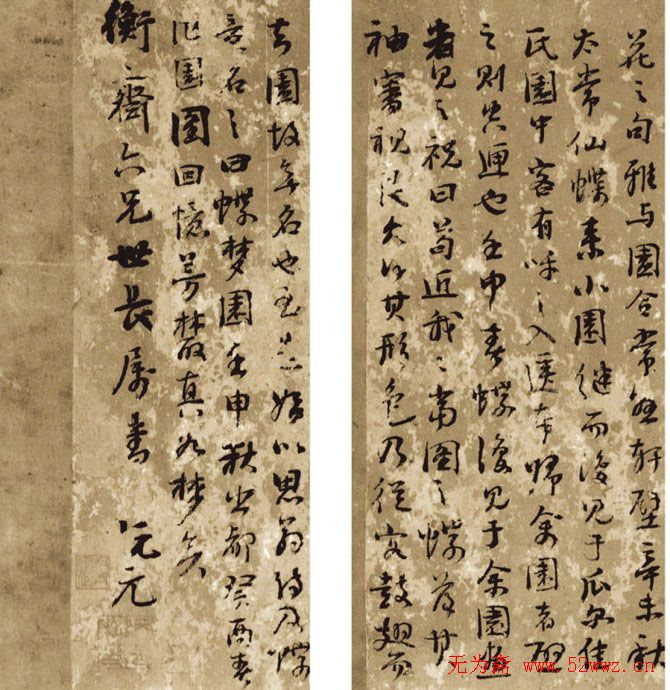 花之句雅与園合常懸軒壁辛未秋
太常仙蝶来小園继而復見于瓜尔佳
氏園中客有呼之入匣奉歸余園者啟
之則空匣也壬申春蝶復見于余園画
者見之祝曰苟近我々當圖之蝶落其
袖審視良久得其形色乃從容鼓翅而
去園故無名也至是始以思翁詩及蝶
意名之曰蝶梦園壬申秋出都癸酉春
作園圖回憶芳叢真如梦矣
衡之齋六兄世長属書 阮元
无为斋 www.52wwz.cn